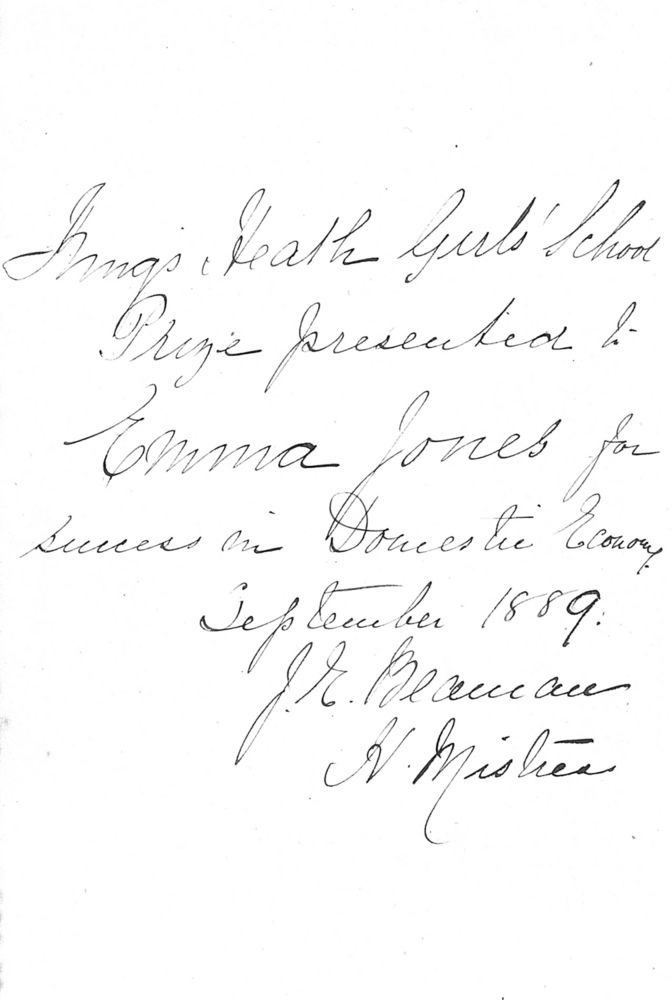 Kings Heath Girls' School
Prize presented to
Emma Jones for
success in Domestic Economy.
September 1889.
J. E. Beaman
H. Mistress